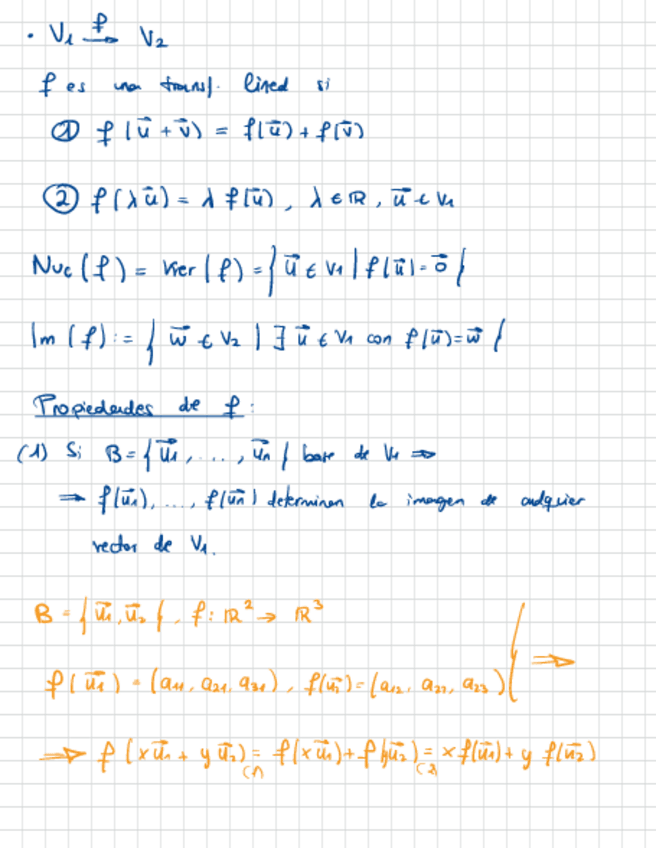 · V₁ →f V₂
f es una transf. lineal si
① f(u⃗ + v⃗) = f(u⃗) + f(v⃗)
② f(λu⃗) = λ f(u⃗), λ ∈ ℝ, u⃗ ∈ V₁
Nuc(f) = Ker(f) = { u⃗ ∈ V₁ | f(u⃗) = 0⃗ }
Im(f) := { w⃗ ∈ V₂ | ∃ u⃗ ∈ V₁ con f(u⃗) = w⃗ }
Propiedades de f:
(1) Si B = { u⃗₁, ..., u⃗ₙ } base de V₁ ⇒
⇒ f(u⃗₁), ..., f(u⃗ₙ) determinan la imagen de cualquier
vector de V₁.
B = { u⃗₁, u⃗₂ }, f: ℝ² → ℝ³
f(u⃗₁) = (a₁₁, a₂₁, a₃₁), f(u⃗₂) = (a₁₂, a₂₂, a₂₃) } ⇒
⇒ f(xu⃗₁ + yu⃗₂) =(1) f(xu⃗₁) + f(yu⃗₂) =(2) x f(u⃗₁) + y f(u⃗₂)